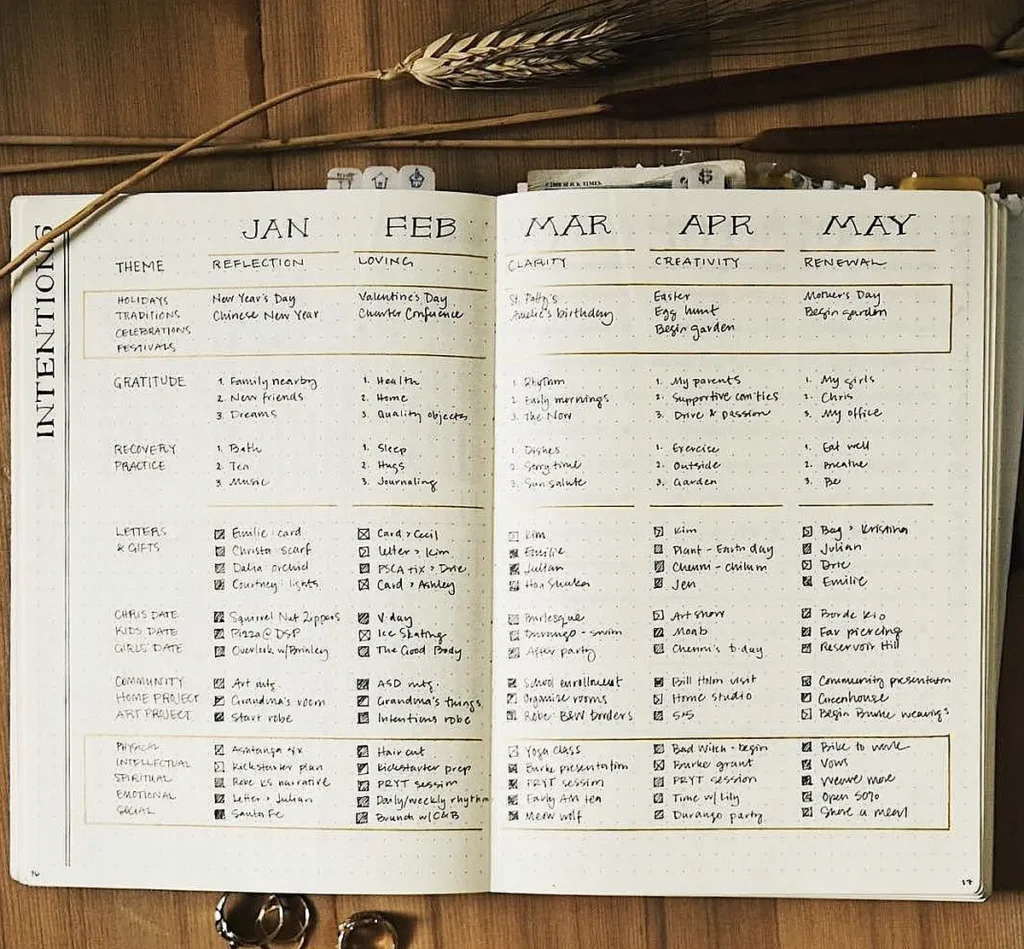 $
INTENTIONS
JAN FEB MAR APR MAY
THEME REFLECTION LOVING CLARITY CREATIVITY RENEWAL
HOLIDAYS New Year's Day Valentine's Day St. Patty's Easter Mother's Day
TRADITIONS Chinese New Year Charter Confuence Amelie's birthday Egg hunt Begin garden
CELEBRATIONS Begin garden
FESTIVALS
GRATITUDE 1. Family nearby 1. Health 1. Rhythm 1. My parents 1. My girls
2. New friends 2. Home 2. Early mornings 2. Supportive com'ties 2. Chris
3. Dreams 3. Quality objects 3. The Now 3. Drive & passion 3. My office
RECOVERY 1. Bath 1. Sleep 1. Dishes 1. Exercise 1. Eat well
PRACTICE 2. Tea 2. Hugs 2. Story time 2. Outside 2. Breathe
3. Music 3. Journaling 3. Sun salute 3. Garden 3. Be
LETTERS Emilie: card Card > Cecil Kim Kim Bag > Kristina
& GIFTS Christa: scarf Letter > Kim Emilie Plant - Earth day Julian
Dalia: orchid PSCA tix > Julian Chenni - chilum
Courtney: lights Card > Ashley Jen Emilie
CHRIS DATE Squirrel Nut Zippers V-day Burlesque Art show
KIDS DATE Pizza @ DSP Ice Skating Durango - swim Moab Ear piercing
GIRLS' DATE Overlook w/Brinley The Good Body After party Chenni's b-day Reservoir Hill
COMMUNITY Art mtg. ASD mtg. School enrollment Bill Holm visit Community presentation
HOME PROJECT Grandma's room Grandma's things Organize rooms Home studio Greenhouse
ART PROJECT Start robe Intentions robe Robe: B&W borders 5x5 Begin Burke weavings
PHYSICAL Ashtanga 6x Hair cut Yoga class Bad Witch - begin Bike to work
INTELLECTUAL Kickstarter plan Kickstarter prep Burke presentation Burke grant Vows
SPIRITUAL Robe KS narrative PRYT session PRYT session PRYT session Weave more
EMOTIONAL Letter > Julian Daily/weekly rhythm Early AM tea Time w/ Lily Open 50%
SOCIAL Santa Fe Brunch w/ Meow Wolf Durango party Share a meal
16 17